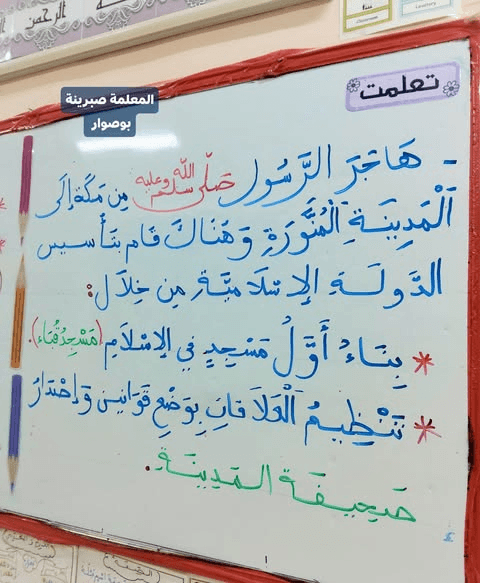 الرحمن
المعلمة صبرينة
بوصوار
تعلمت
- هَاجَرَ الرَّسُول صَلَّى اللَّه عليه وسلم مِن مَكَّة إلَى
الْمَدِينَةِ الْمُنَوَّرَةِ وَهُنَاكَ قَام بتَأْسيس
الدَّولَةِ الإسْلَامِيَّةِ مِن خِلَالِ:
* بِنَاءُ أَوَّلُ مَسْجِدٍ فِي الإسْلَامِ (مَسْجِدُ قُبَاء).
* تَنْظِيمُ الْعَلَاقَاتِ بِوَضْعِ قَوَانِين وَإصْدَارُ
صَحِيفَةِ المَدِينَةِ.